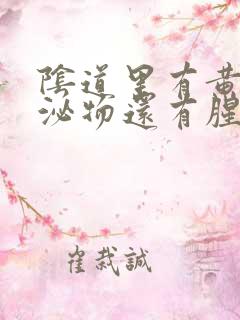 陰道里有黃
泌物還有腥
崔裁誠